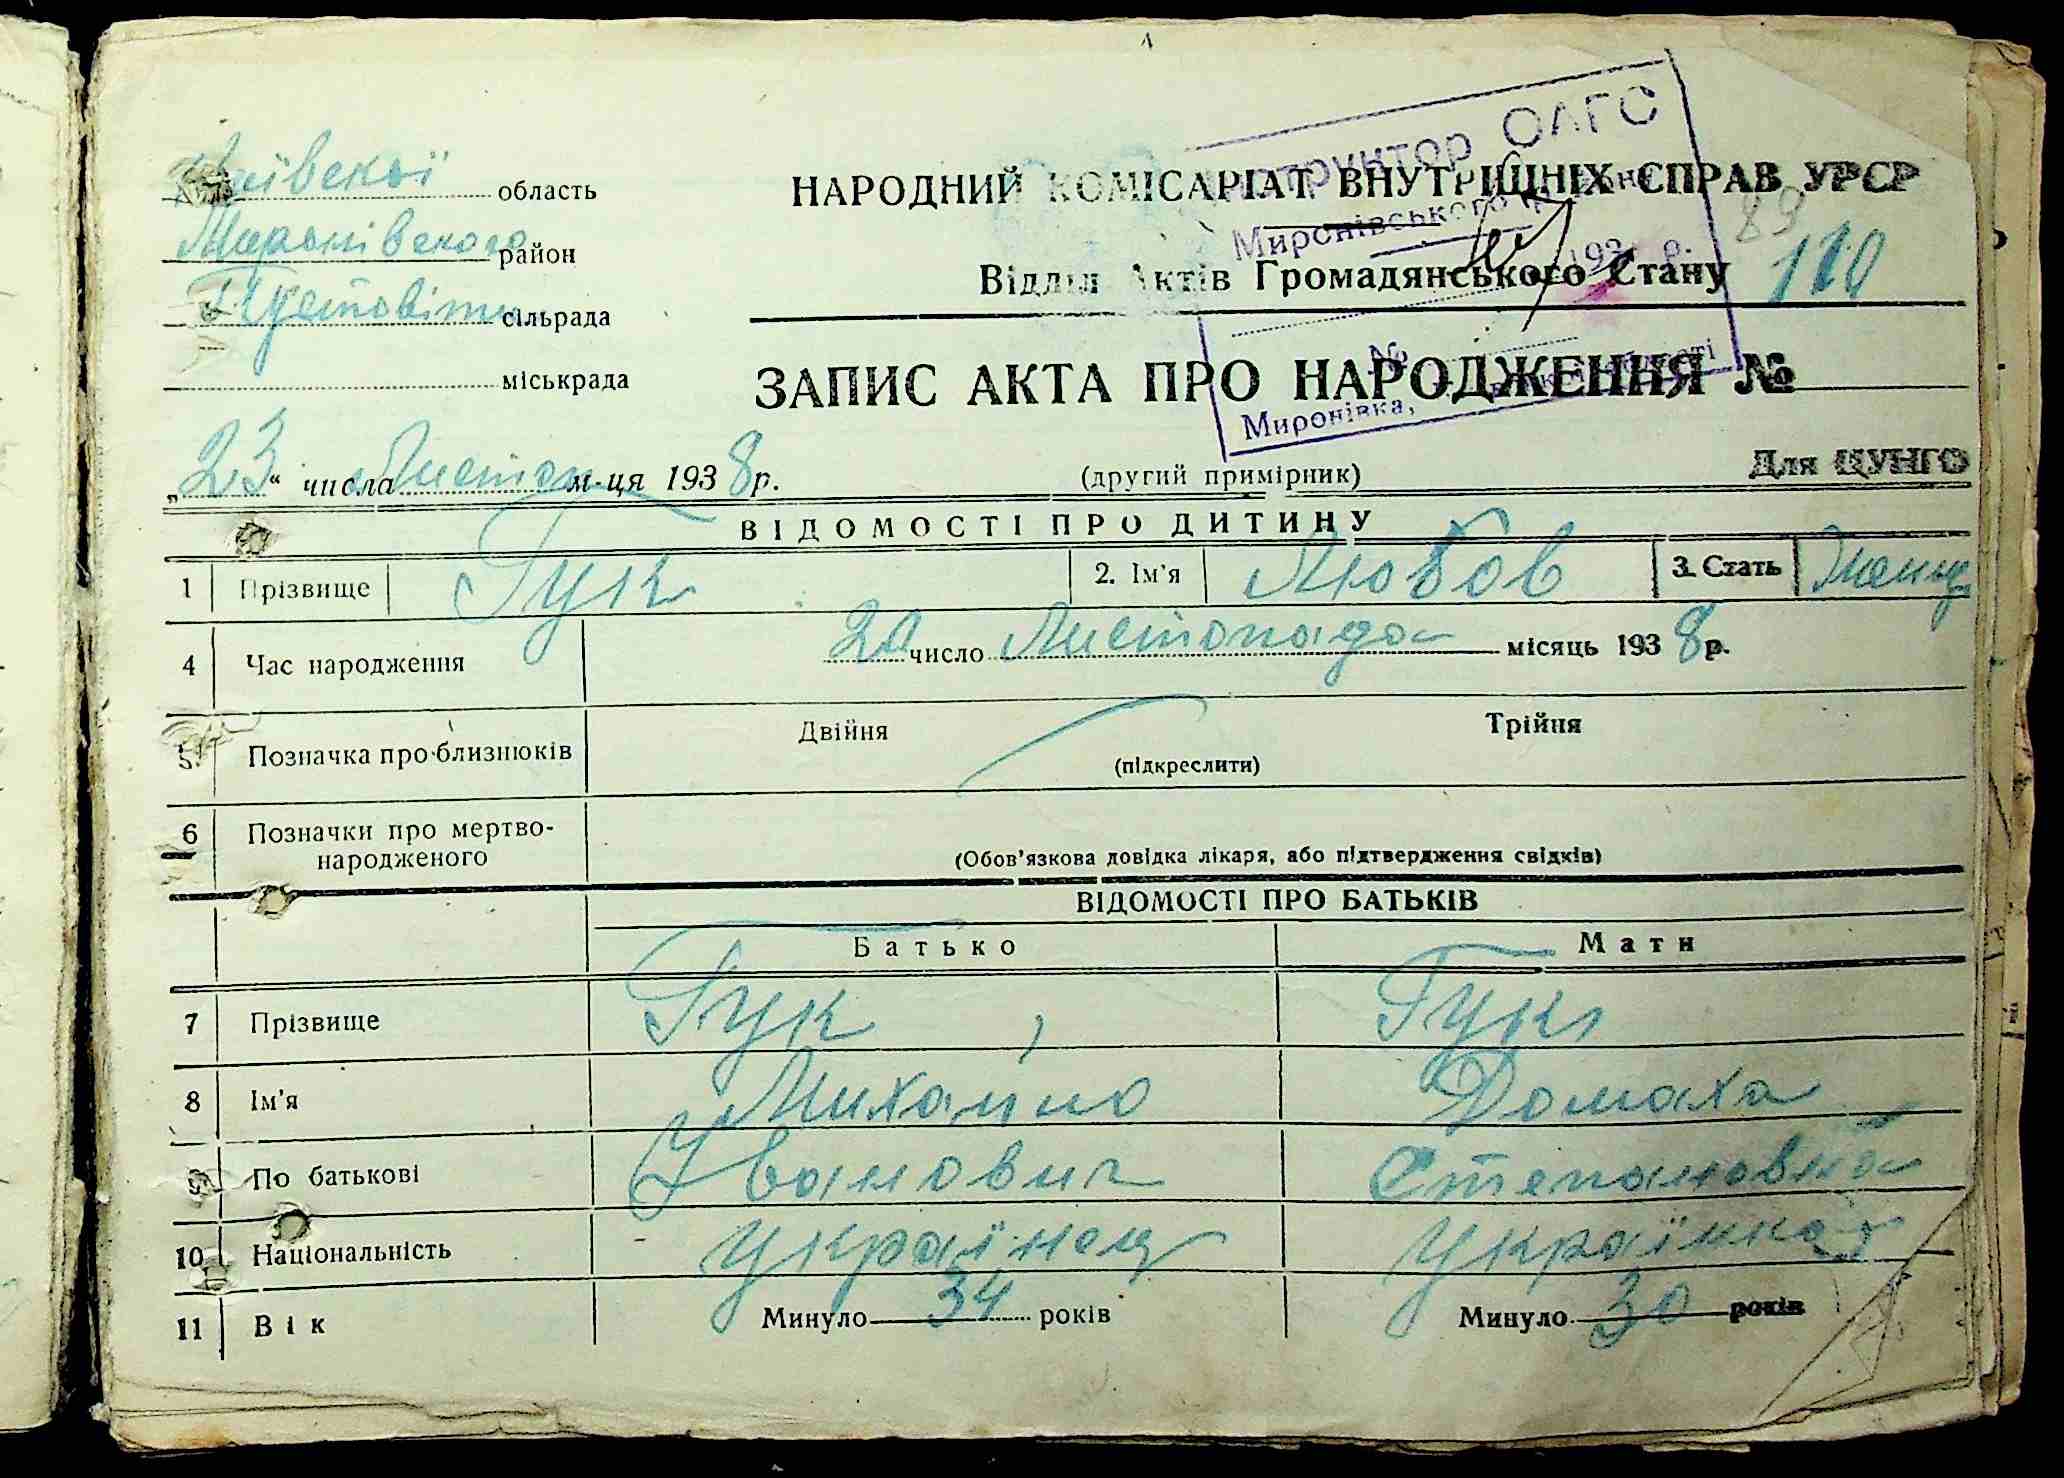 Київської область
Миронівського район
Пустовіти сільрада
міськрада
НАРОДНИЙ КОМІСАРІАТ ВНУТРІШНІХ СПРАВ УРСР
Відділ Актів Громадянського Стану
89
110
ЗАПИС АКТА ПРО НАРОДЖЕННЯ №
Інструктор ОАГС
Миронівського
193 р.
№
Миронівка,
„23“ числа Листопа м-ця 1938р.
(другий примірник)
Для ЦУНГО
ВІДОМОСТІ ПРО ДИТИНУ
1 Прізвище Гук 2. Ім'я Любов 3. Стать Жіноч
4 Час народження 20 число Листопада місяць 1938р.
5 Позначка про близнюків Двійня (підкреслити) Трійня
6 Позначки про мертво-
народженого (Обов'язкова довідка лікаря, або підтвердження свідків)
ВІДОМОСТІ ПРО БАТЬКІВ
Батько Мати
7 Прізвище Гук Гук
8 Ім'я Михайло Домаха
9 По батькові Іванович Степановна
10 Національність Українец Українка
11 Вік Минуло 34 років Минуло 30 років